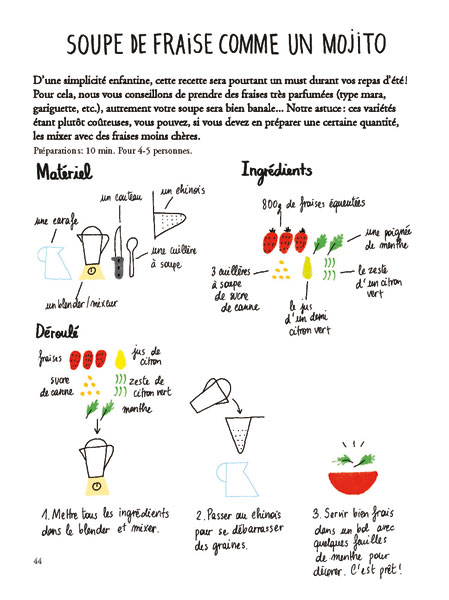 SOUPE DE FRAISE COMME UN MOJITO
D'une simplicité enfantine, cette recette sera pourtant un must durant vos repas d'été!
Pour cela, nous vous conseillons de prendre des fraises très parfumées (type mara,
gariguette, etc.), autrement votre soupe sera bien banale... Notre astuce : ces variétés
étant plutôt coûteuses, vous pouvez, si vous devez en préparer une certaine quantité,
les mixer avec des fraises moins chères.
Préparations: 10 min. Pour 4-5 personnes.
Matériel
une carafe
un couteau
un chinois
une cuillère
à soupe
un blender/mixeur
Ingrédients
800g de fraises équeutées
une poignée
de menthe
3 cuillères
à soupe
de sucre
de canne
le jus
d'un demi
citron vert
le zeste
d'un citron
vert
Déroulé
fraises
jus de
citron
sucre
de canne
zeste de
citron vert
menthe
1. Mettre tous les ingrédients
dans le blender et mixer.
2. Passer au chinois
pour se débarrasser
des graines.
3. Servir bien frais
dans un bol avec
quelques feuilles
de menthe pour
décorer. C'est prêt!
44